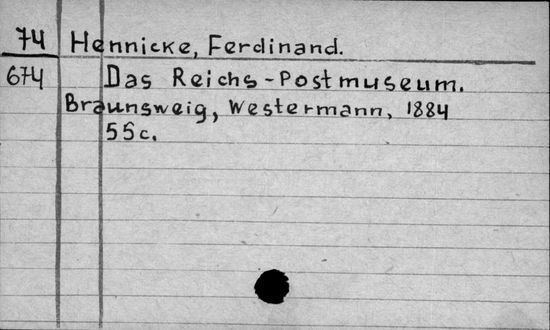 74 Hennicke, Ferdinand.
674 Das Reichs-Postmuseum.
Braunsweig, Westermann, 1884
55 c.